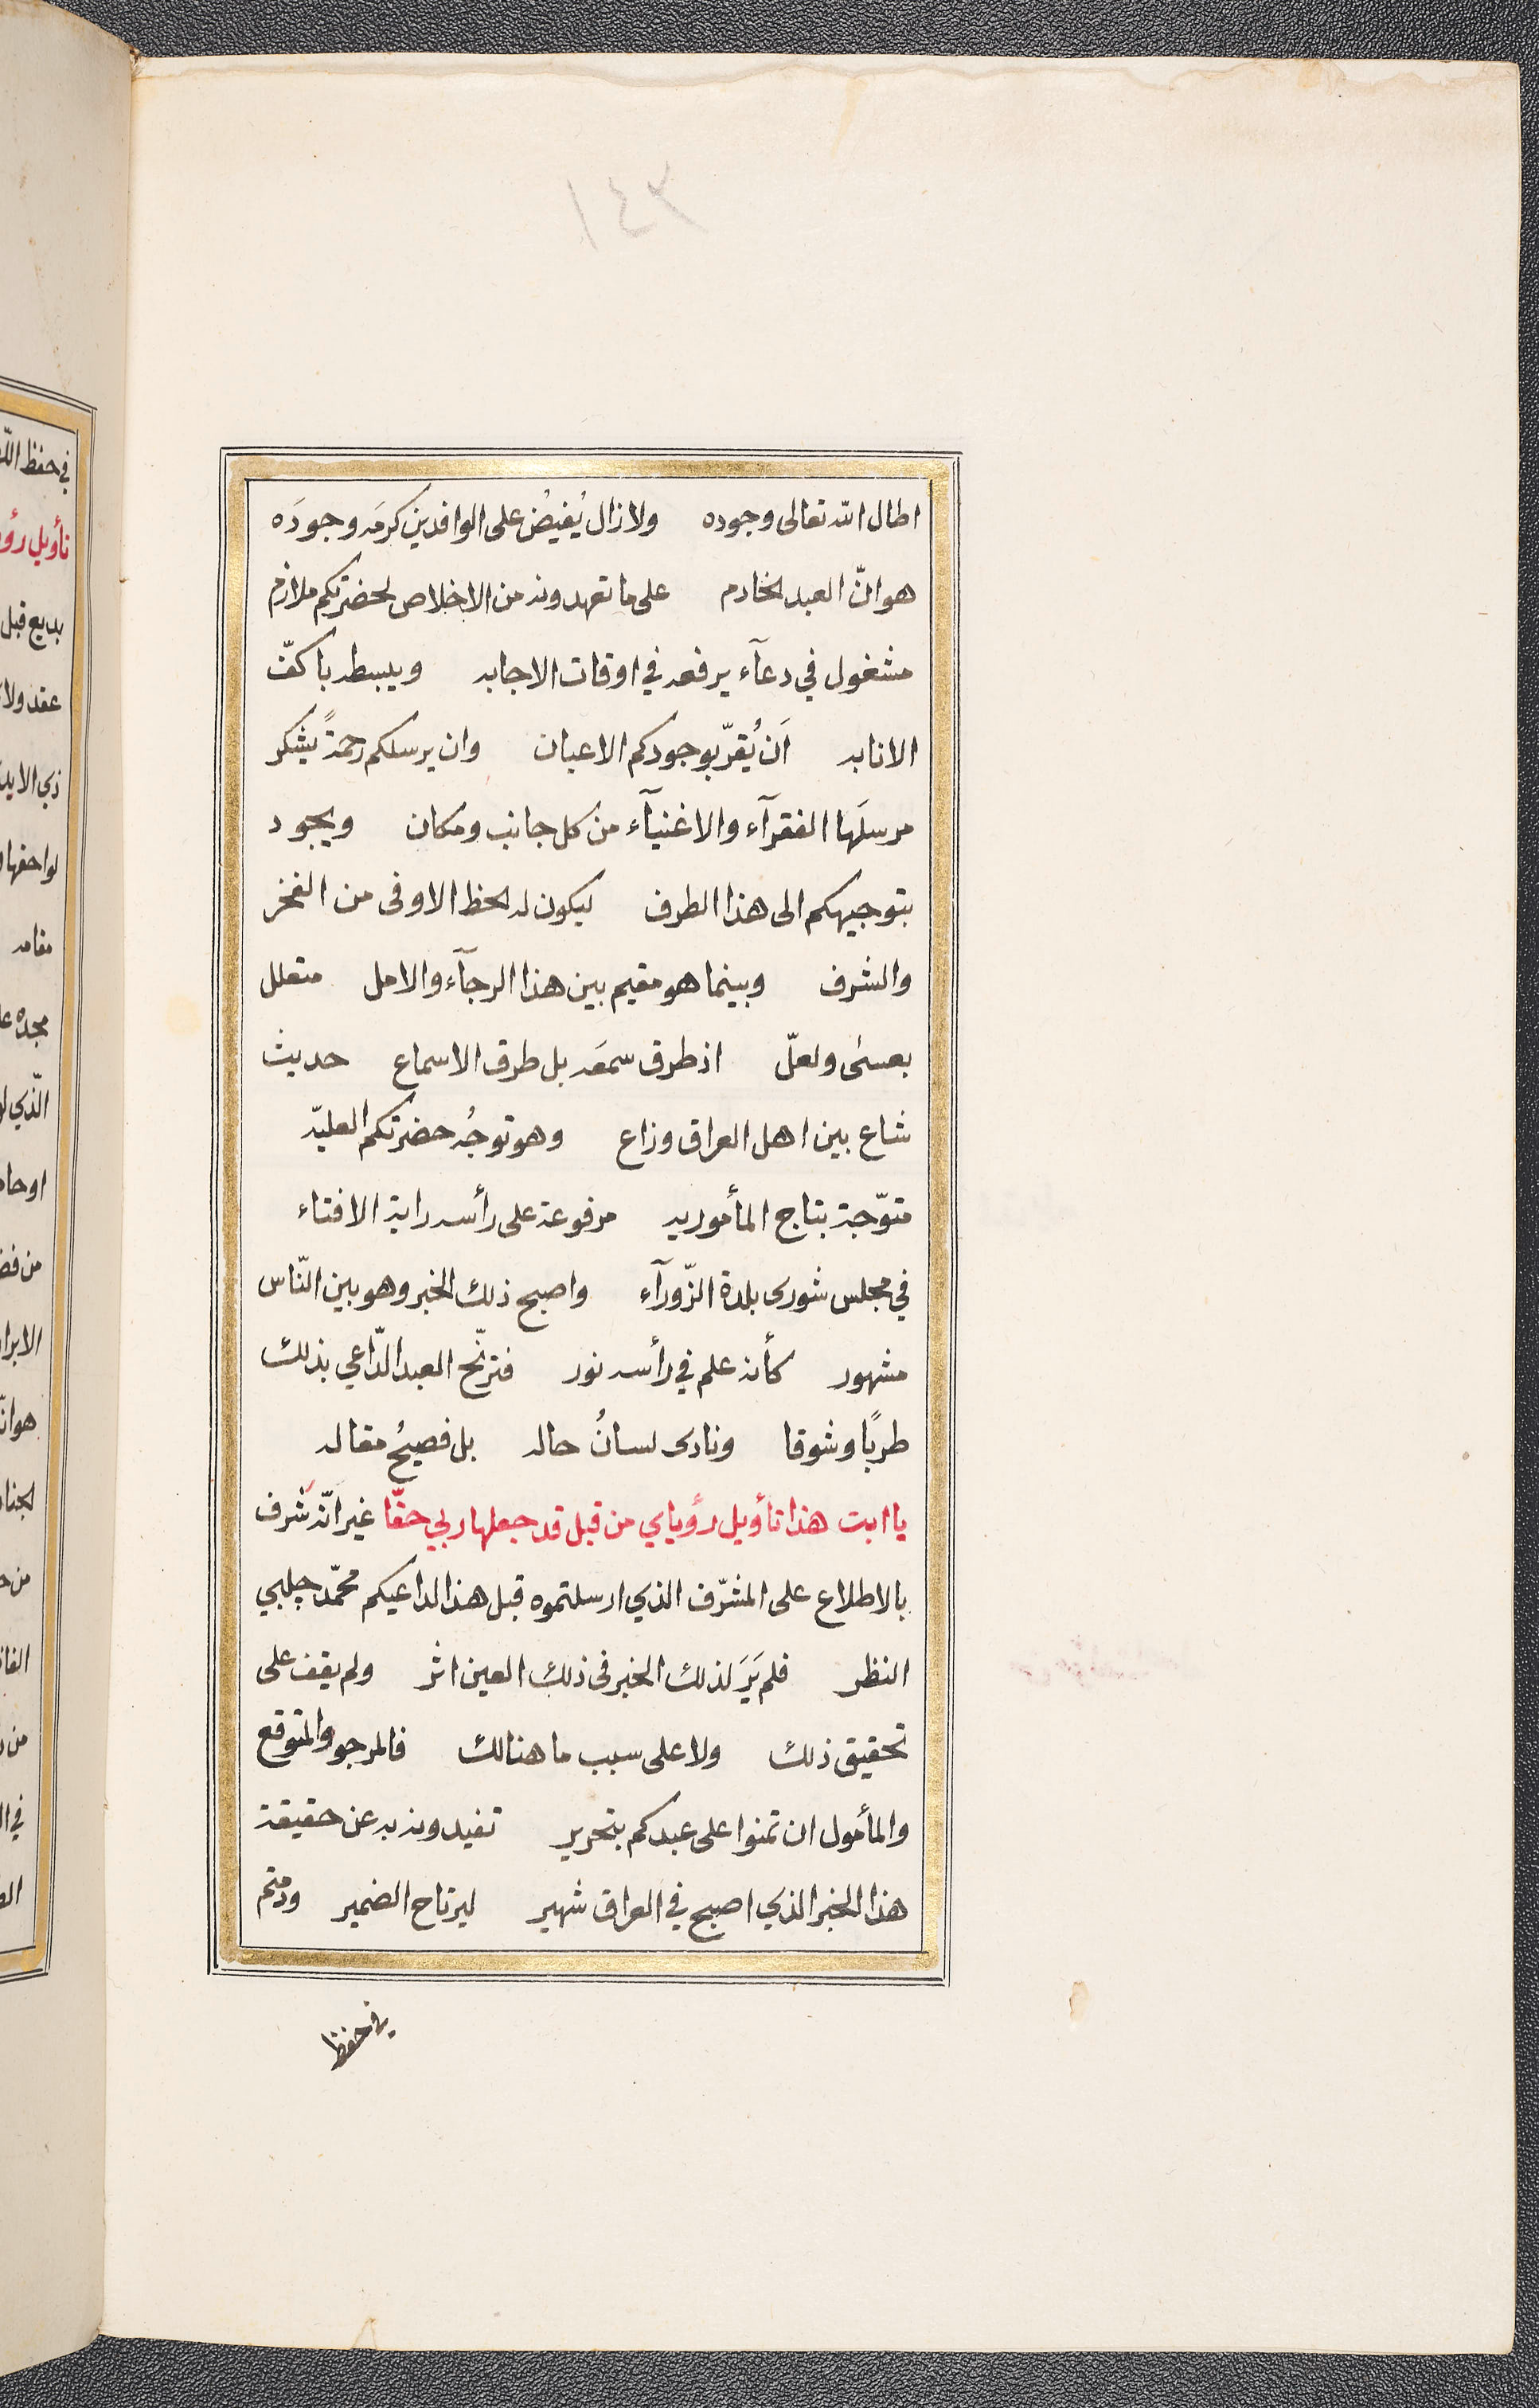 ٢٤١
اطال الله تعالى وجوده ولا زال يُفيضُ على الوافدين كرمَه وجودَه
هو انّ العبد الخادم على ما تعهدونه من الاخلاص لحضرتكم ملازم
مشغول في دعآء يرفعه في اوقات الاجابه ويبسطه باكفّ
الانابه اَن يُقرّ بوجودكم الاعيان وان يرسلكم رحمةً يشكر
مرسلَها الفقرآء والاغنيآء من كل جانب ومكان ويجود
بتوجيهكم الى هذا الطرف ليكون له الحظ الاوفى من الفخر
والشرف وبينما هو مقيم بين هذا الرجآء والامل متعلل
بعسى ولعلّ اذ طرق سمعَه بل طرق الاسماع حديث
شاع بين اهل العراق وزاع وهو توجُه حضرتكم العليّه
متوّجة بتاج المأموريه مرفوعة على رأسه راية الافتاء
في مجلس شورى بلدة الزّورآء واصبح ذلك الخبر وهو بين النّاس
مشهور كأنه علم في رأسه نور فترنّح العبد الدّاعي بذلك
طربًا وشوقا ونادى لسانُ حاله بل فصيحُ مقاله
يا ابت هذا تأويل رؤياي من قبل قد جعلها ربي حقّا غير انّه شرف
بالاطلاع على المشرّف الذي ارسلتموه قبل هذا لداعيكم محمّد چلبي
النظر فلم يَرَ لذلك الخبر فى ذلك العين اثر ولم يقف على
تحقيق ذلك ولا على سبب ما هنالك فالمرجو والمتوقع
والمأمول ان تمنوا على عبدكم بتحرير تفيدونه به عن حقيقة
هذا الخبر الذي اصبح في العراق شهير ليرتاح الضمير ودمتم
في حفظ